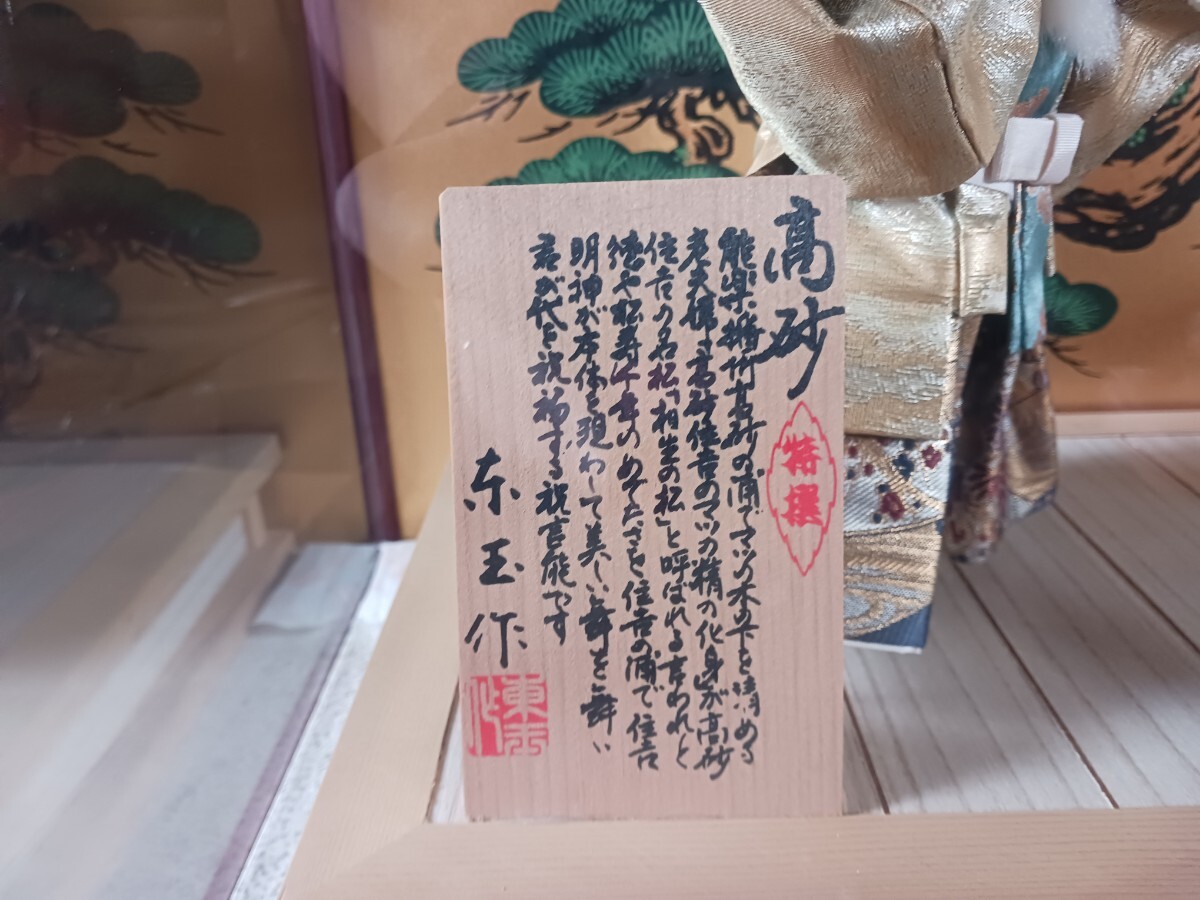 高砂
特撰
能楽、播州高砂の浦でマツの木の下を清める
老夫婦は高砂住吉のマツの精の化身が高砂
住吉の名松「相生の松」と呼ばれる言われと
徳や松寿千年のめでたさを住吉の浦で住吉
明神が本体を現わして美しい舞を舞い
君が代を祝福する祝言能です
東玉作
東玉作